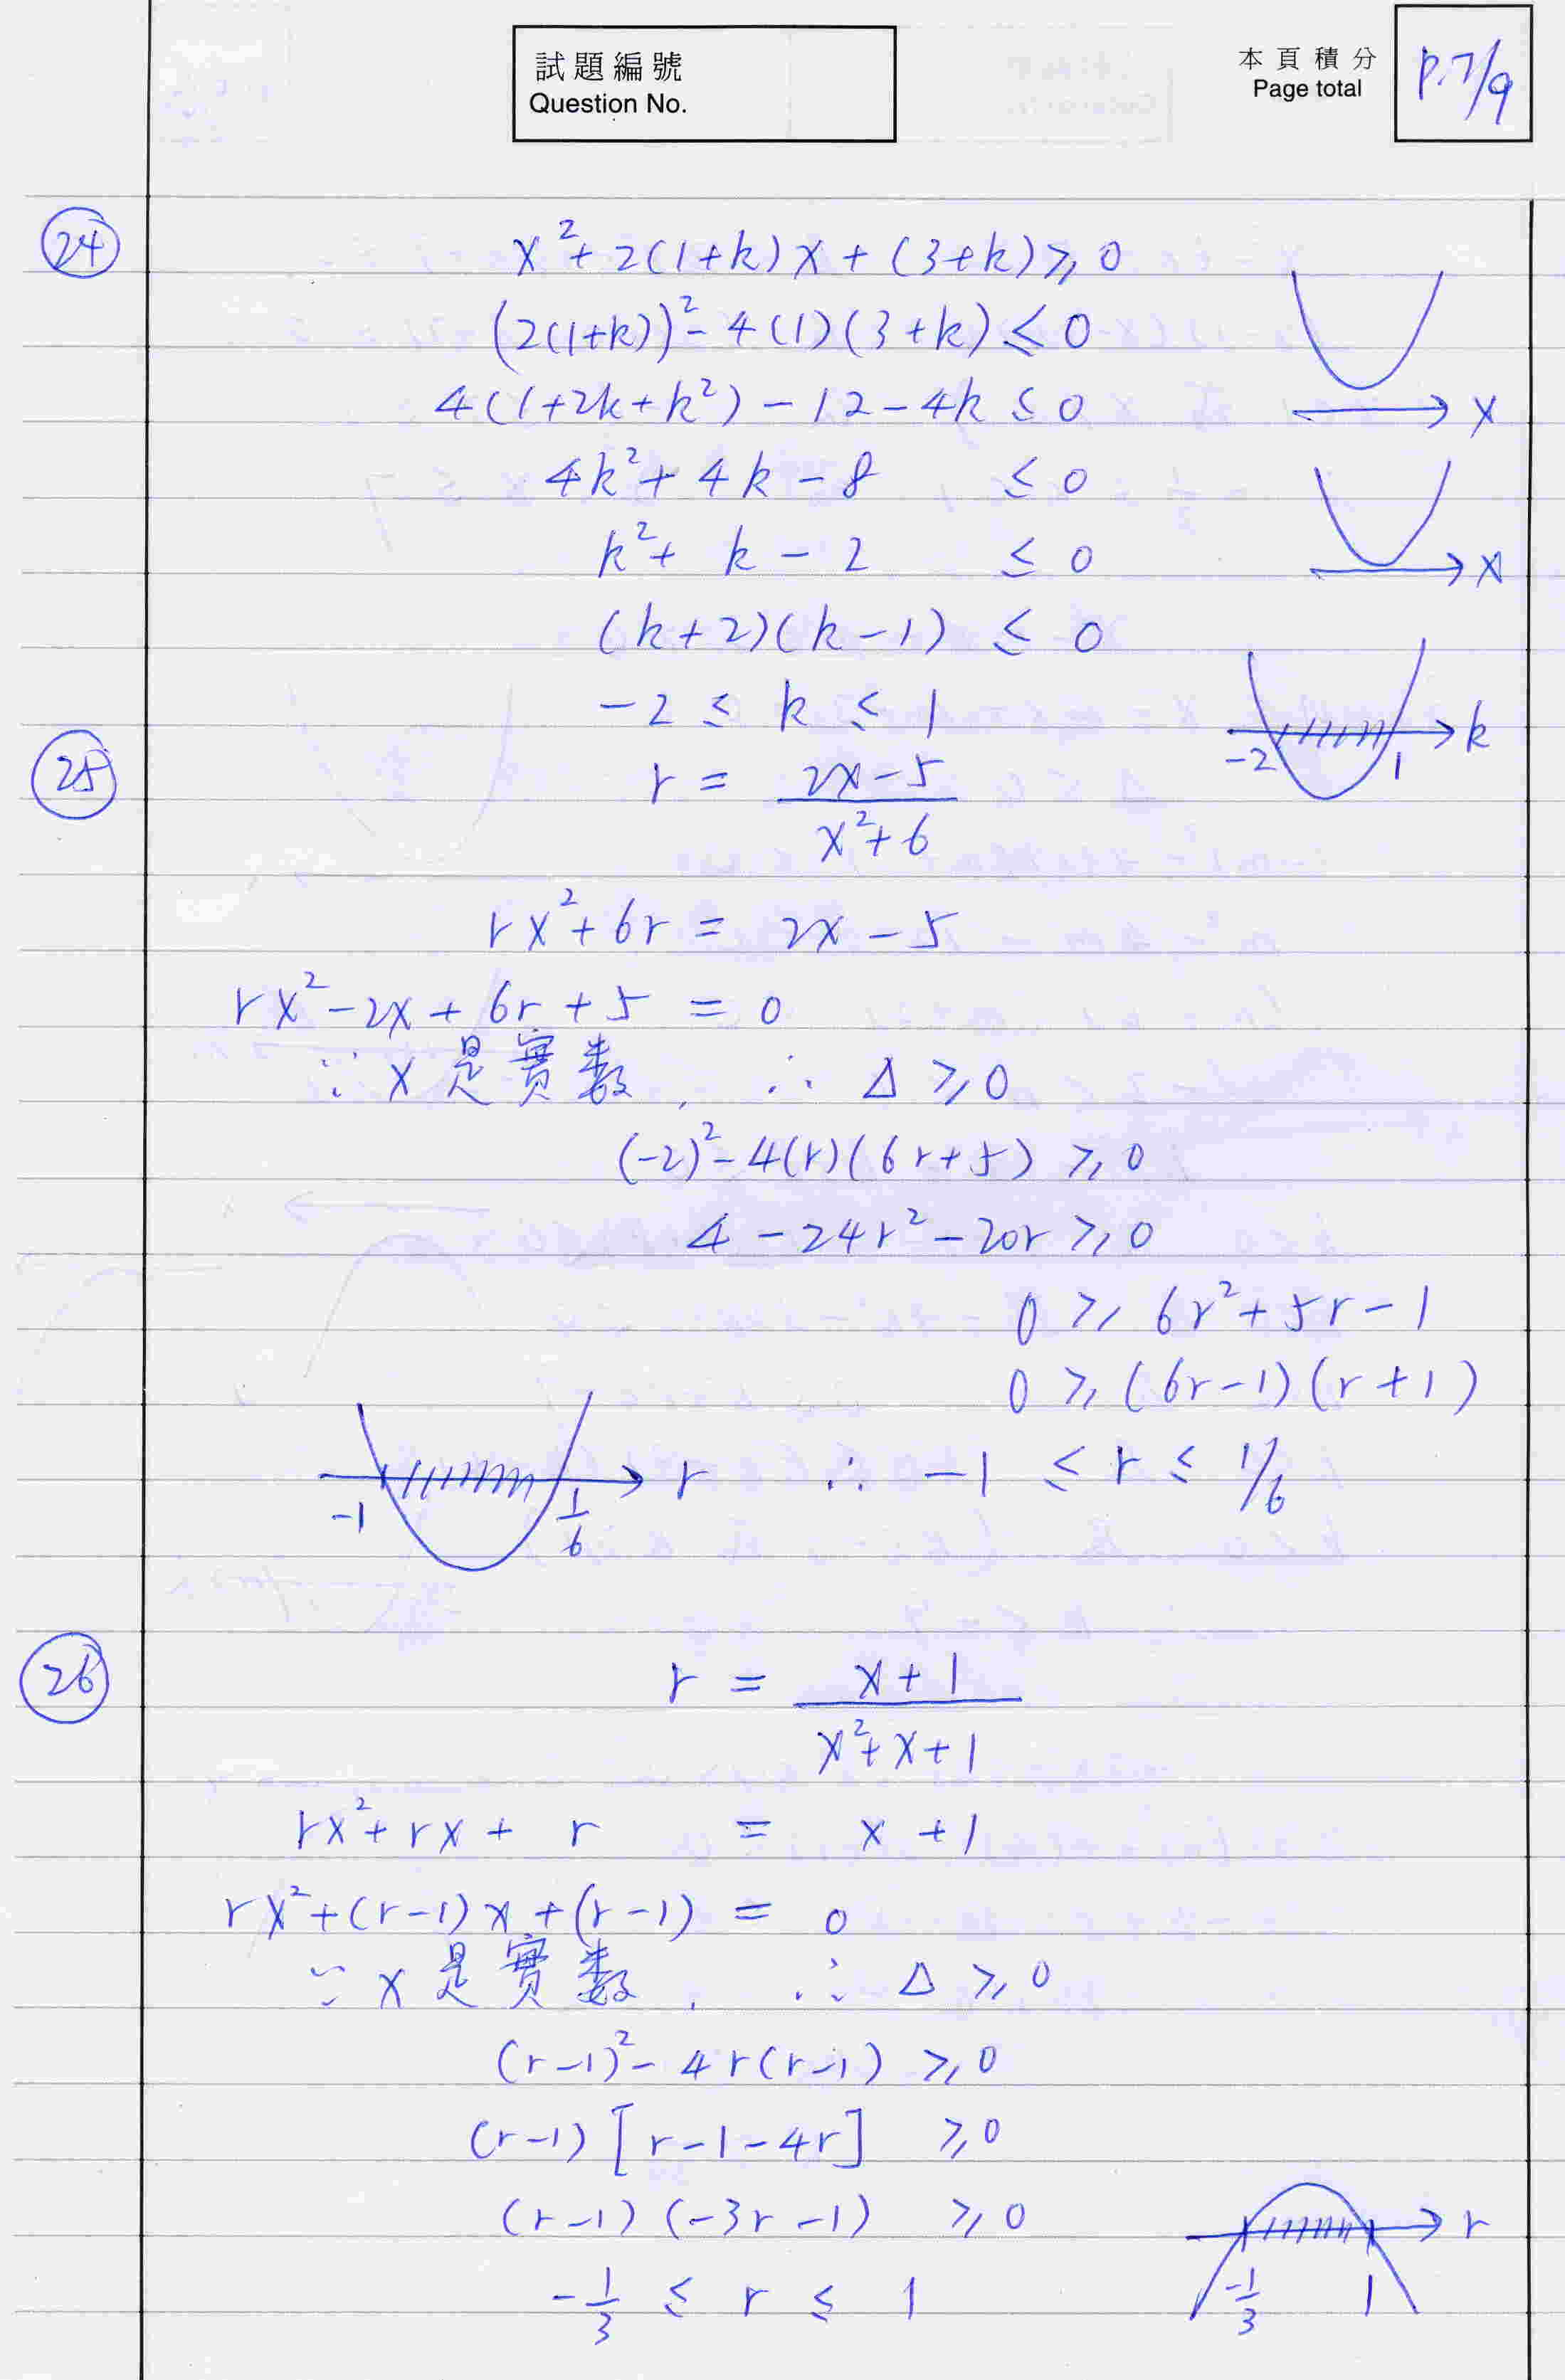 試題編號
Question No.
本頁積分
Page total
P.7/9
24
x²+2(1+k)x+(3+k)≥0
(2(1+k))²-4(1)(3+k)≤0
4(1+2k+k²)-12-4k≤0
x
4k²+4k-8 ≤0
k²+k-2 ≤0
x
(k+2)(k-1) ≤ 0
-2 ≤ k ≤ 1
k
-2 1
25
r = (2x-5)/(x²+6)
rx²+6r = 2x-5
rx²-2x+6r+5 = 0
∵ x是實数, ∴ Δ≥0
(-2)²-4(r)(6r+5) ≥0
4-24r²-20r ≥0
0 ≥ 6r²+5r-1
0 ≥ (6r-1)(r+1)
r ∴ -1 ≤ r ≤ 1/6
-1 1/6
26
r = (x+1)/(x²+x+1)
rx²+rx+r = x+1
rx²+(r-1)x+(r-1) = 0
∵ x是實数, ∴ Δ≥0
(r-1)²-4r(r-1) ≥0
(r-1)[r-1-4r] ≥0
(r-1)(-3r-1) ≥0
r
-1/3 ≤ r ≤ 1
-1/3 1